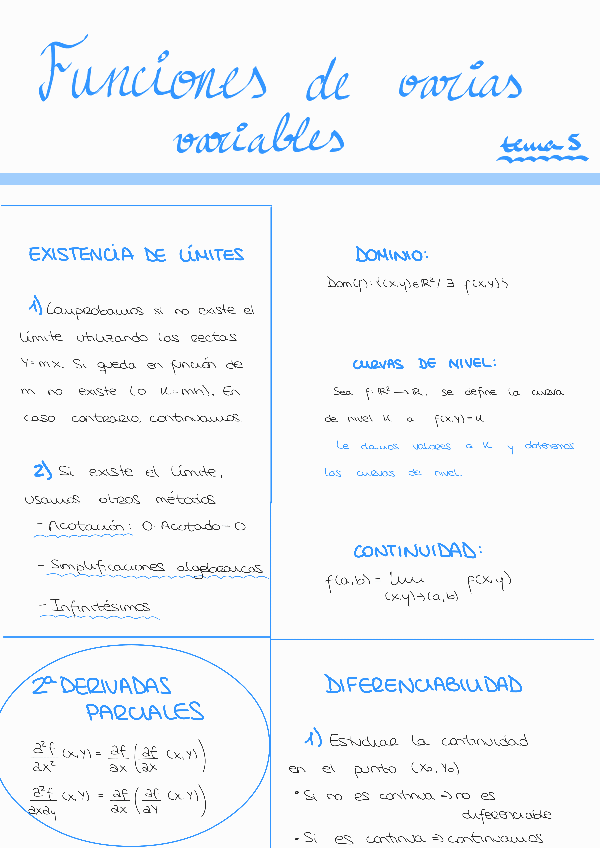 Funciones de varias
variables
tema 5
EXISTENCIA DE LÍMITES
1) Comprobamos si no existe el
límite utilizando las rectas
y=mx. Si queda en función de
m no existe (o
En
caso contrario, continuamos
2) Si existe el límite,
usamos otros métodos
- Acotación: 0·Acotado=0
- Simplificaciones algebraicas
- Infinitésimos
DOMINIO:
Dom(f):{(x,y)∈ℝ²/∃ f(x,y)}
CURVAS DE NIVEL:
Sea f:ℝ²→ℝ, se define la curva
de nivel K a f(x,y)=K
Le damos valores a K y obtenemos
las curvas de nivel.
CONTINUIDAD:
f(a,b) = lim f(x,y)
(x,y)→(a,b)
2ª DERIVADAS
PARCIALES
∂²f/∂x² (x,y) = ∂f/∂x (∂f/∂x (x,y))
∂²f/∂x∂y (x,y) = ∂f/∂x (∂f/∂y (x,y))
DIFERENCIABILIDAD
1) Estudiar la continuidad
en el punto (x₀,y₀)
• Si no es continua ⇒ no es
diferenciable
• Si es continua ⇒ continuamos